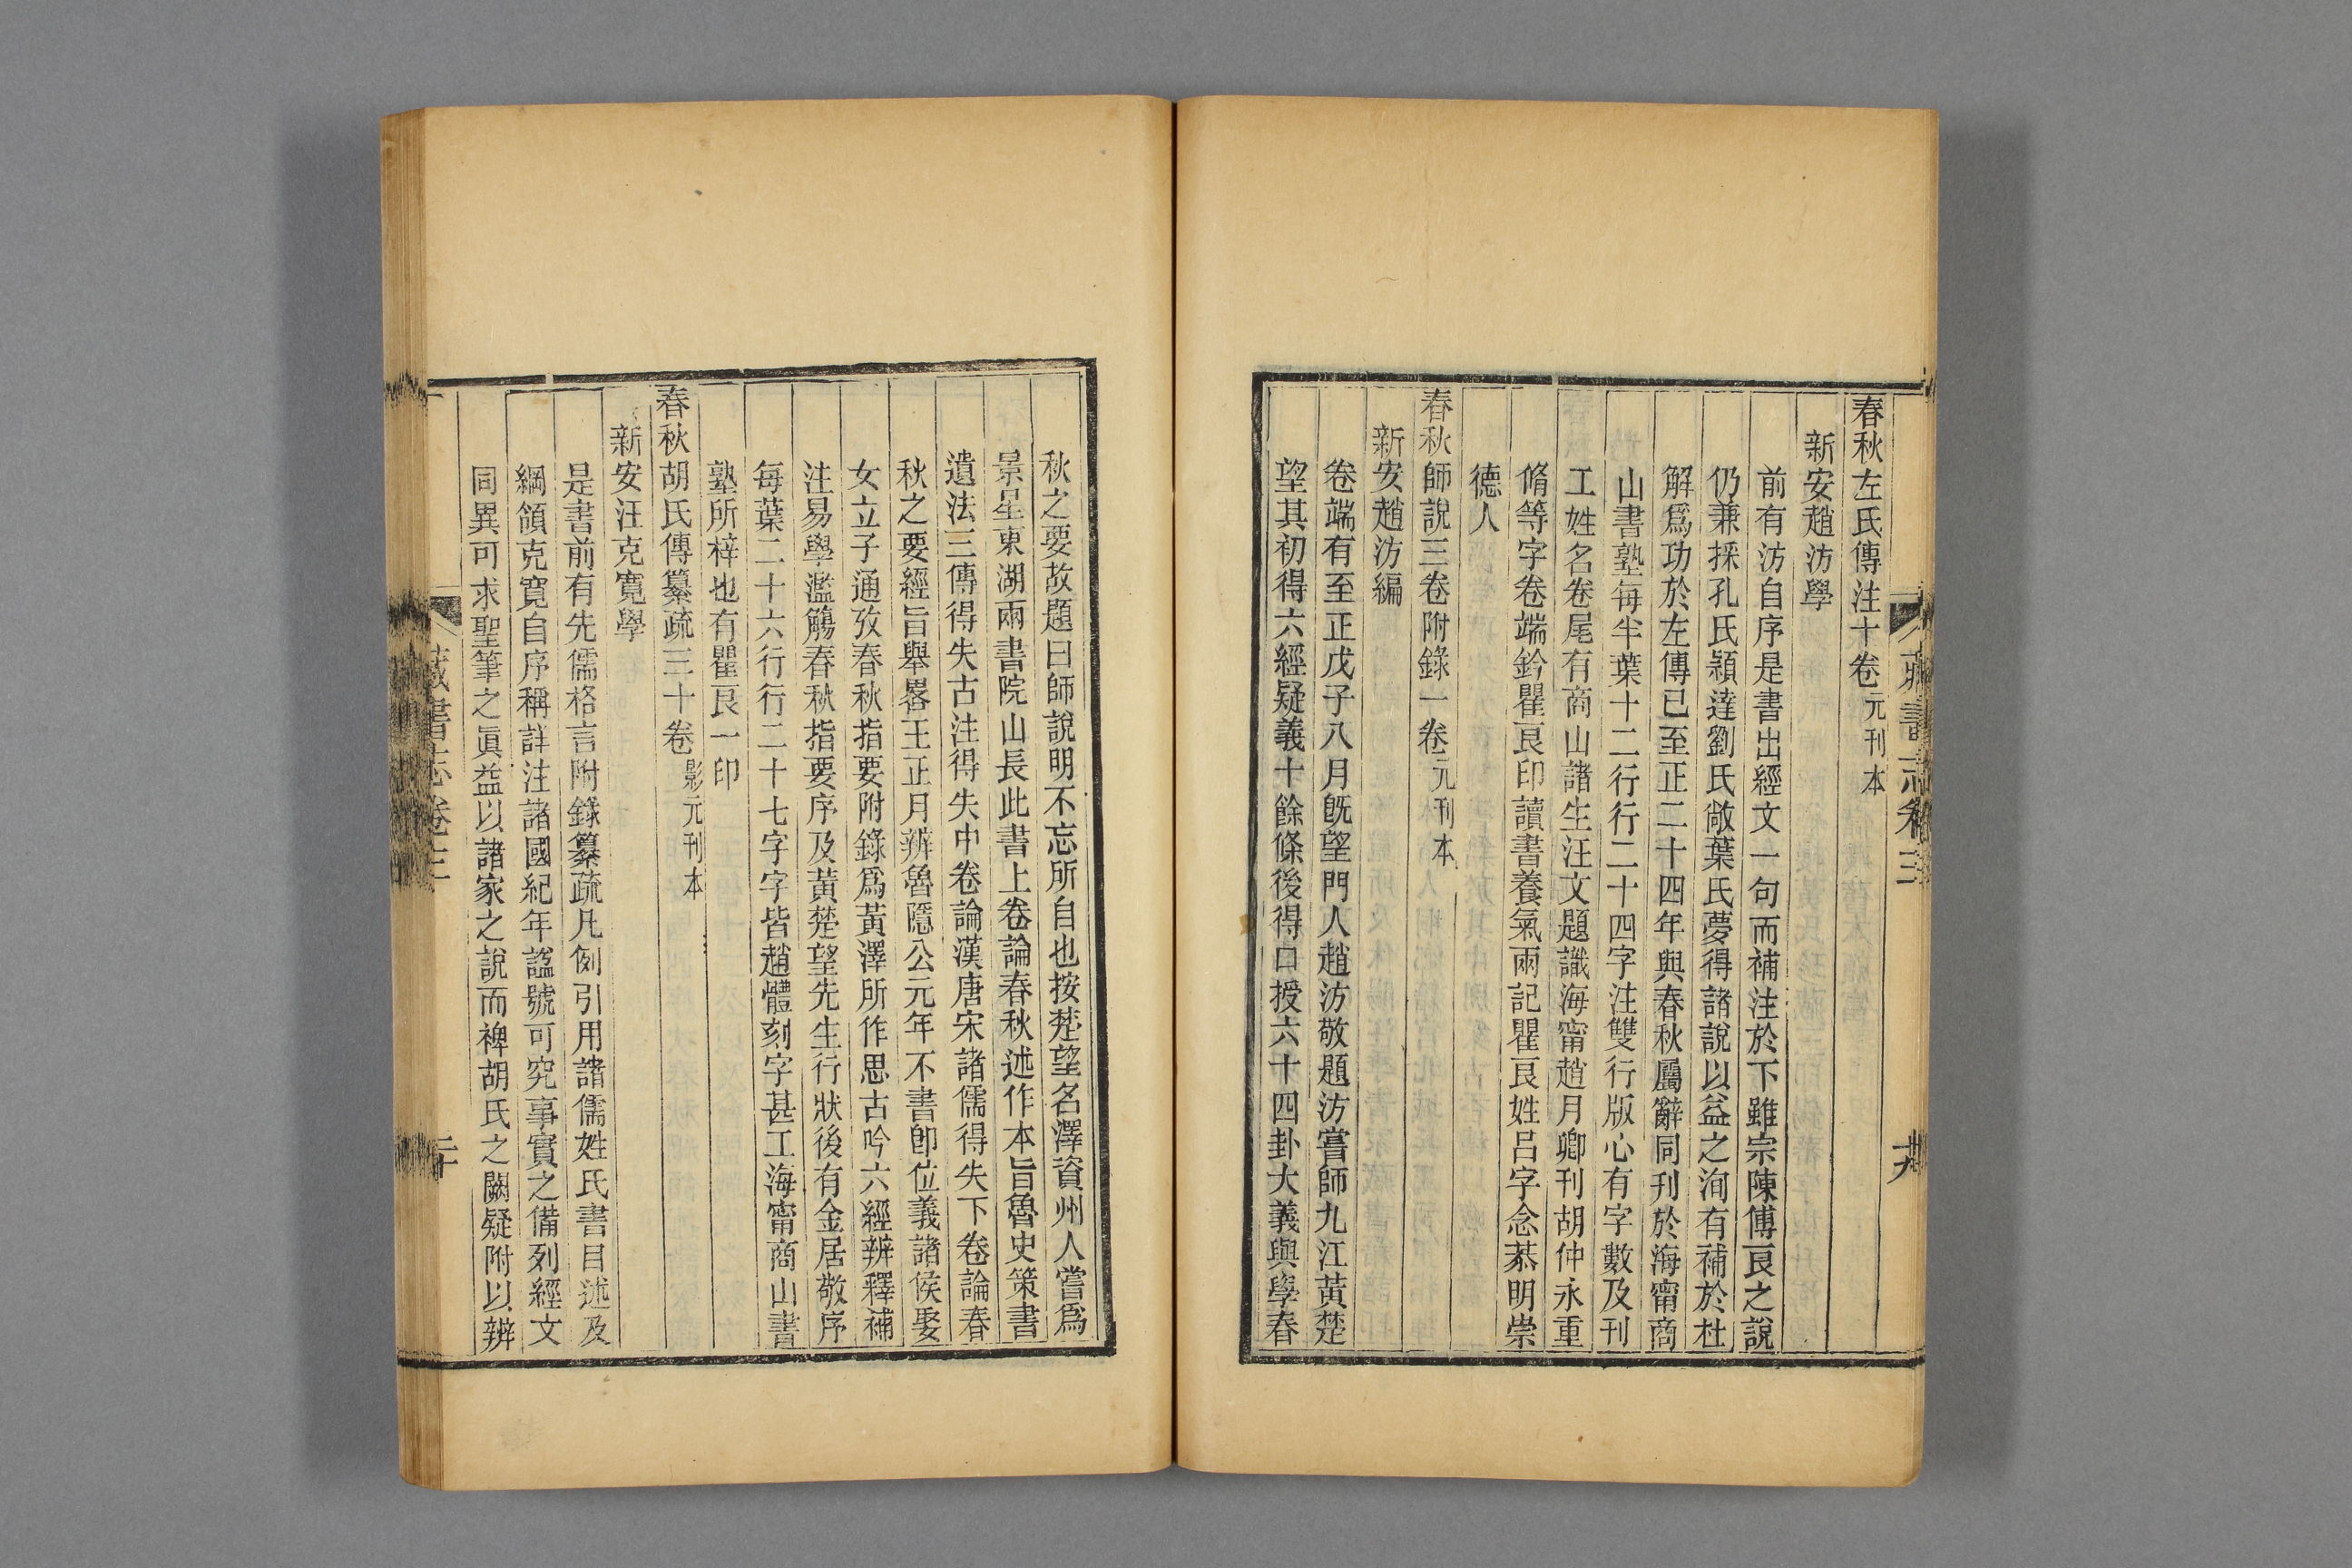 藏書志卷三
十九
春秋左氏傳注十卷元刊本
新安趙汸學
前有汸自序是書出經文一句而補注於下雖宗陳傅良之說
仍兼採孔氏穎達劉氏敞葉氏夢得諸說以益之洵有補於杜
解爲功於左傳已至正二十四年與春秋屬辭同刊於海甯商
山書塾每半葉十二行行二十四字注雙行版心有字數及刊
工姓名卷尾有商山諸生汪文題識海甯趙月卿刊胡仲永重
脩等字卷端鈐瞿良印讀書養氣兩記瞿良姓呂字念菾明崇
德人
春秋師說三卷附錄一卷元刊本
新安趙汸編
卷端有至正戊子八月旣望門人趙汸敬題汸嘗師九江黃楚
望其初得六經疑義十餘條後得口授六十四卦大義與學春
秋之要故題曰師說明不忘所自也按楚望名澤資州人嘗爲
景星東湖兩書院山長此書上卷論春秋述作本旨魯史策書
遺法三傳得失古注得失中卷論漢唐宋諸儒得失下卷論春
秋之要經旨舉畧王正月辨魯隱公元年不書卽位義諸侯娶
女立子通攷春秋指要附錄爲黃澤所作思古吟六經辨釋補
注易學濫觴春秋指要序及黃楚望先生行狀後有金居敬序
每葉二十六行行二十七字字皆趙體刻字甚工海甯商山書
塾所梓也有瞿良一印
春秋胡氏傳纂疏三十卷影元刊本
新安汪克寬學
是書前有先儒格言附錄纂疏凡例引用諸儒姓氏書目述及
綱領克寬自序稱詳注諸國紀年諡號可究事實之備列經文
同異可求聖筆之眞益以諸家之說而裨胡氏之闕疑附以辨
藏書志卷三
二十